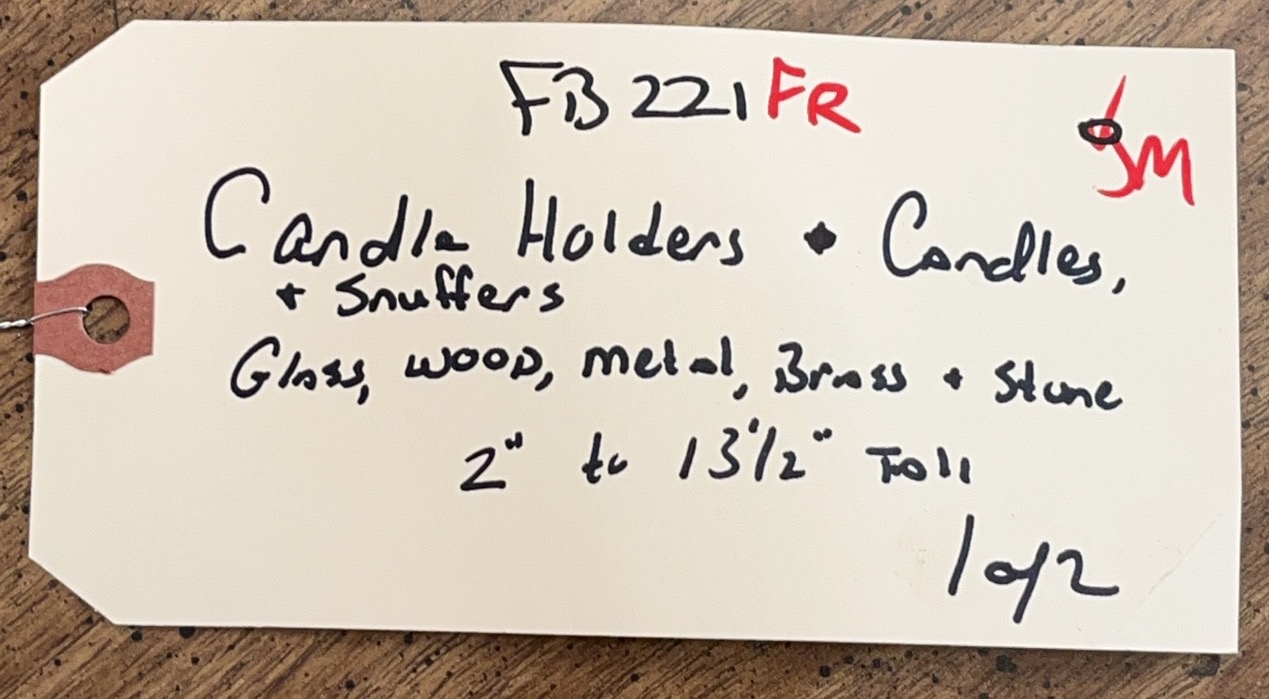 FB221 FR
JM
Candle Holders + Candles,
+ Snuffers
Glass, wood, metal, Brass + Stone
2" to 13 1/2" Tall
1 of 2